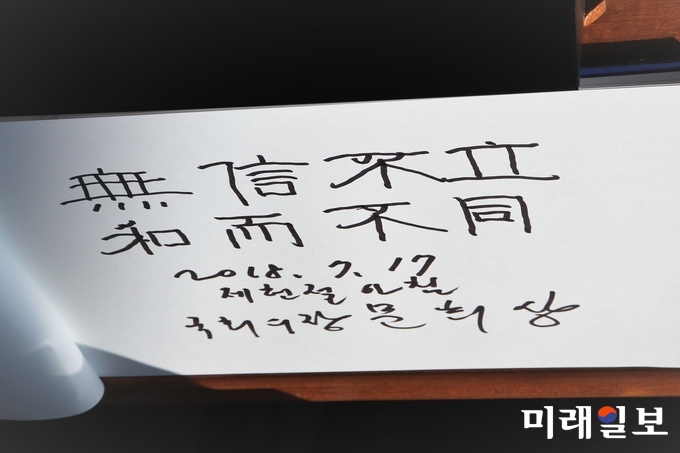 無信不立
和而不同
2018. 7. 17
제헌절 아침
국회의장 문희상
미래일보